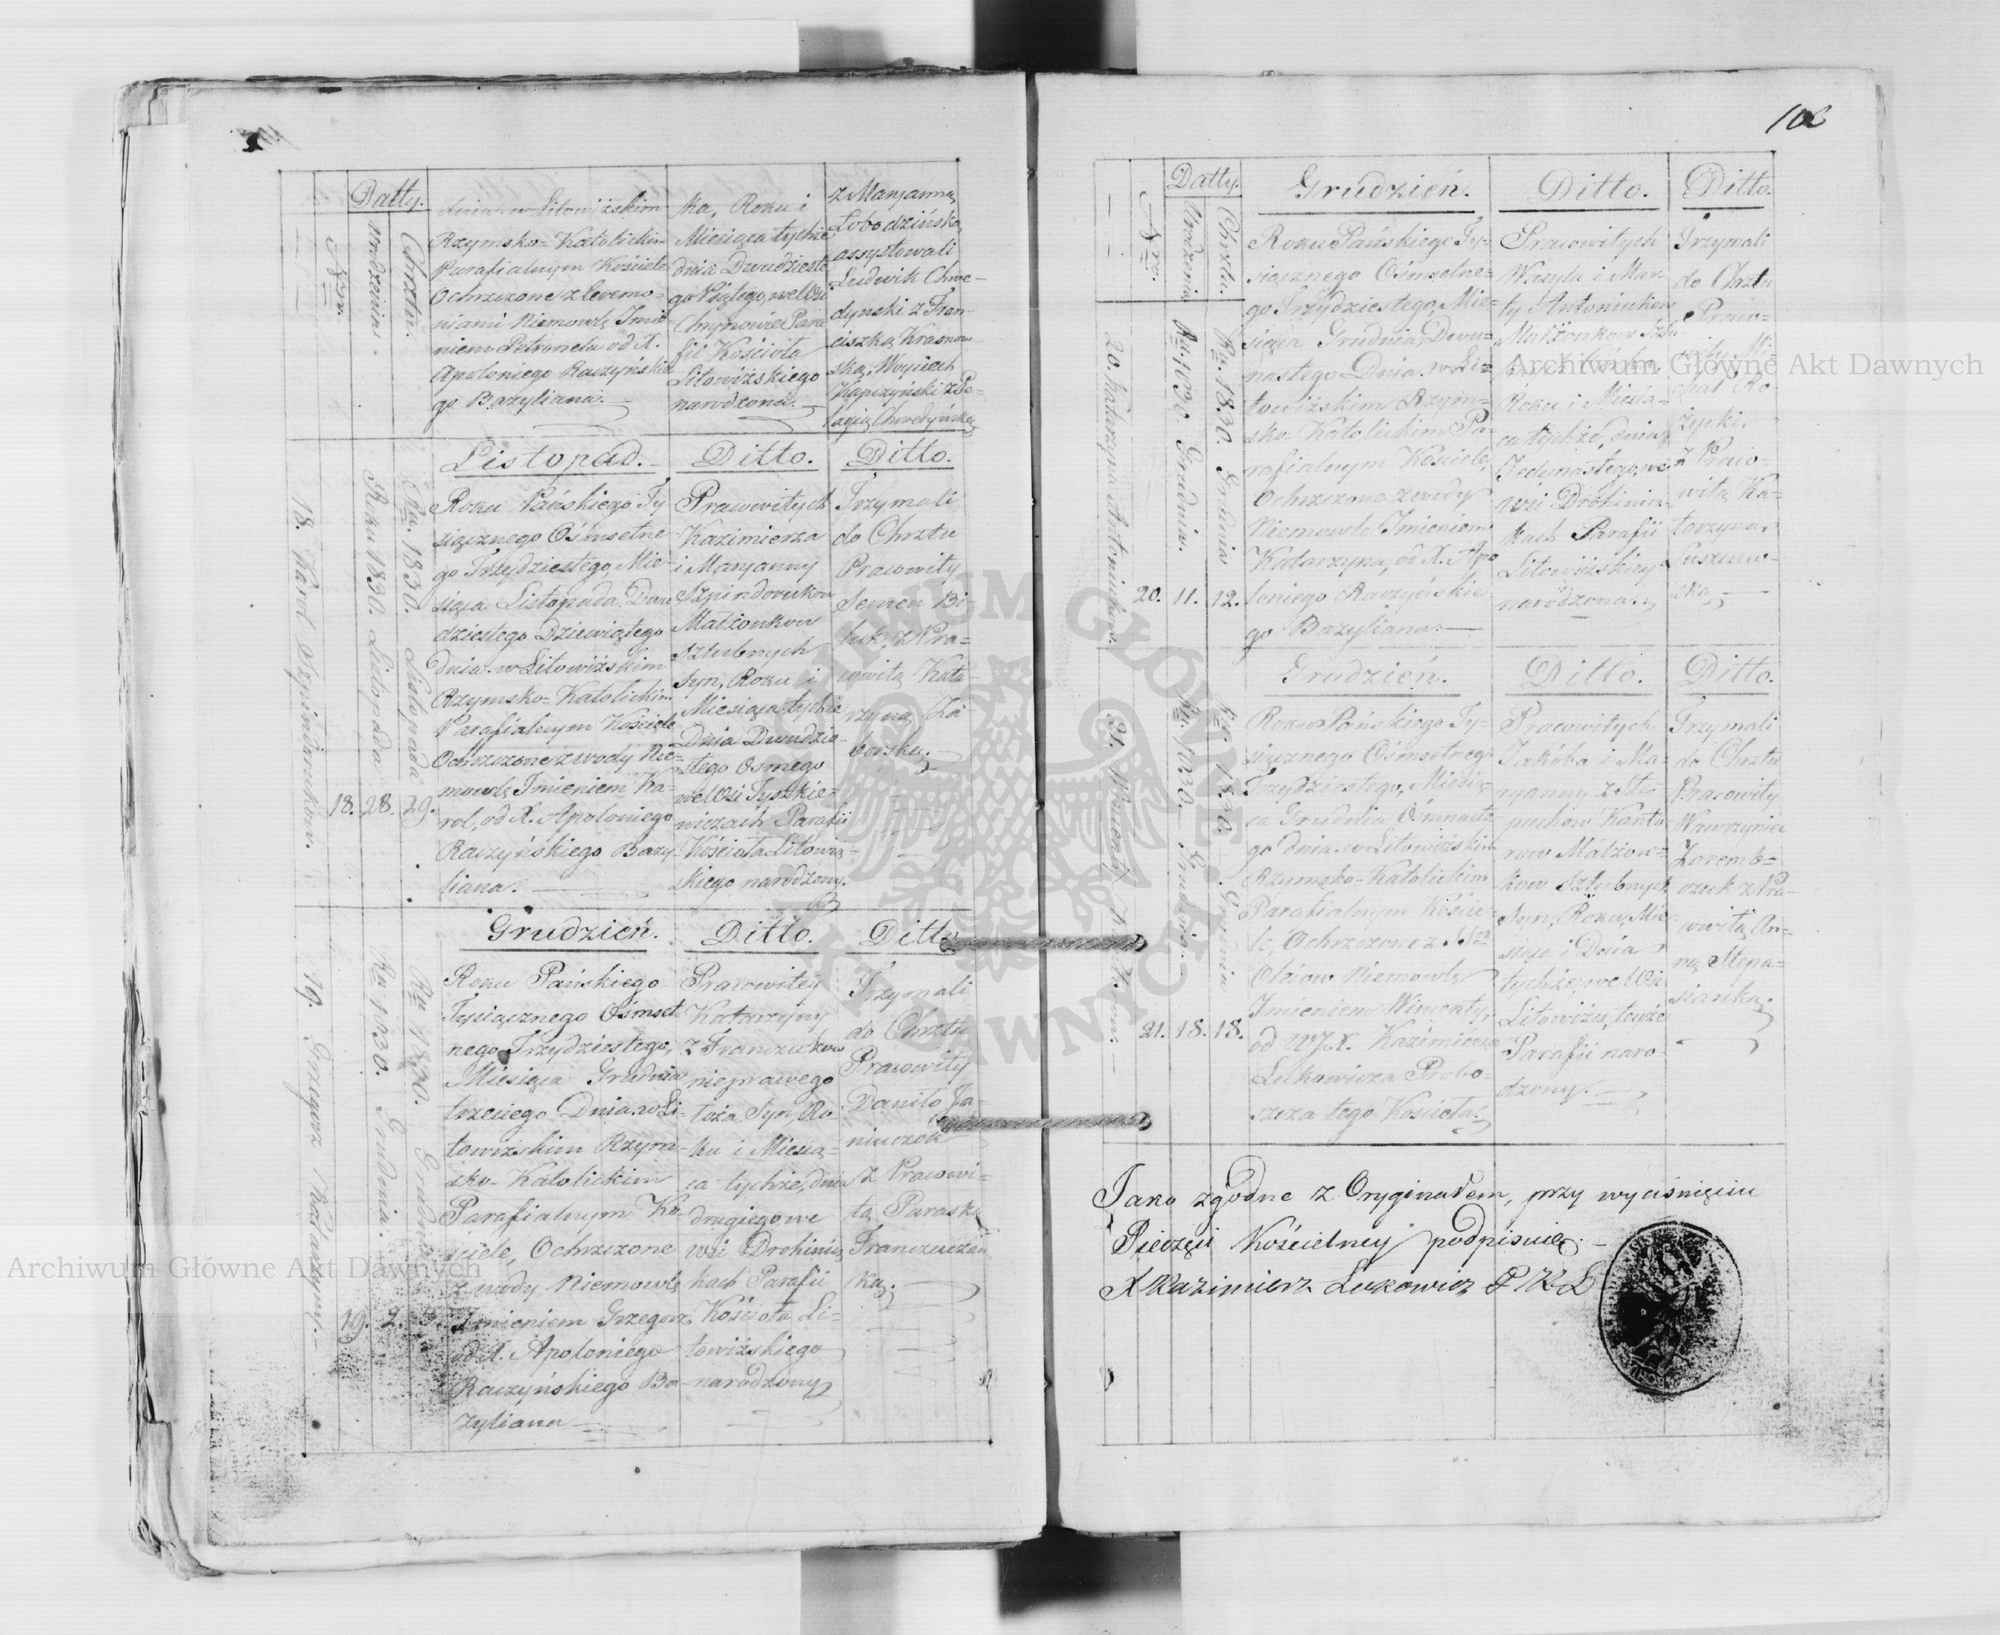 102
Datty.
Nro.
Urodzenia.
Chrztu.
dnia w Litowiżskim
Rzymsko-Katolickim
Parafialnym Kościele
Ochrzczone z Ceremo-
niami Niemowlę Imie
niem Petronela od X.
Apoloniego Raczyńskie
go Bazyliana.
ka, Roku i
Miesiąca tychże
dnia Dwudzieste
go Piątego, we Wsi
Para
fii Kościoła
Litowiżskiego
narodzona.
z Maryanną
Łobodzińską,
assystowali
Ludwik Chwe-
dynski z Fran-
ciszką Krasnow
ską, Woyciech
Kapczyński z Pe-
lagią Chwedyńską
Listopad.
Ditto.
Ditto.
18. Karol Szpindoruków.
Roku 1830. Listopada
Ru. 1830. Listopada
18. 28. 29.
Roku Pańskiego Ty-
siącznego Ośmsetne
go Trzydziestego, Mie-
siąca Listopada Dwu
dziestego Dziewiątego
dnia w Litowiżskim
Rzymsko-Katolickim
Parafialnym Kościele
Ochrzczone z wody Nie-
mowlę Imieniem Ka-
rol, od X. Apoloniego
Raczyńskiego Bazy-
liana.
Pracowitych
Kazimierza
i Maryanny
Szpindoruków
Małżonkow
szlubnych
Syn, Roku i
Miesiąca tychże
Dnia Dwudzie-
stego Osmego
we Wsi Tyszkie-
wiczach Parafii
Kościoła Litowiż-
skiego narodzony.
Trzymali
do Chrztu
Pracowity
Semen Bi-
luk, z Pra-
cowitą Kata-
rzyną Za-
borską.
Grudzień.
Ditto.
Ditto.
19. Grzegorz
Ru 1830. Grudnia.
Ru 1830. Grudnia
19. 2. 3.
Roku Pańskiego
Tysiącznego Ośmset
nego Trzydziestego,
Miesiąca Grudnia
trzeciego Dnia w Li-
towiżskim Rzym-
sko-Katolickim
Parafialnym Ko-
ściele, Ochrzczone
z wody Niemowlę
Imieniem Grzegorz
od X. Apoloniego
Raczyńskiego Ba-
zyliana
Pracowitey
Katarzyny
z Franczuków
nieprawego
łoża Syn, Ro-
ku i Miesią-
ca tychże, dnia
drugiego we
wsi Drohinicz
kach Parafii
Kościoła Li-
towiżskiego
narodzony
Trzymali
do Chrztu
Pracowity
Daniło Ja-
niuczok
z Pracowi-
tą Paraską
Franczuczan
ką.
Datty.
Nro.
Urodzenia
Chrztu.
Grudzień.
Ditto.
Ditto.
20. Katarzyna Antoniuków.
Ru. 1830. Grudnia.
Ru. 1830. Grudnia
20. 11. 12.
Roku Pańskiego Ty-
siącznego Ośmsetne-
go Trzydziestego, Mie-
siąca Grudnia, Dwu-
nastego Dnia w Li-
towiżskim Rzym-
sko-Katolickim Pa-
rafialnym Kościele,
Ochrzczone z wody
Niemowle Imieniem
Katarzyna, od X. Apo
loniego Raczyńskie
go Bazyliana.
Pracowitych
Wasyla i Mar
ty Antoniuków
Małżonkow Szlu
Roku i Miesią-
ca tychże, dnia
Jedenastego, we
wsi Drohinicz-
kach Parafii
Litowiżskiey
narodzona.
Trzymali
do Chrztu
Praco-
wity Mi-
chał Ro-
życki,
z Praco-
witą Ka-
tarzyną
Łuszczew-
ską.
Grudzień.
Ditto.
Ditto.
21. Wincenty
Ru. 1830. Grudnia.
Ru. 1830. Grudnia
21. 18. 18.
Roku Pańskiego Ty-
siącznego Ośmsetnego
Trzydziestego, Miesią-
ca Grudnia Ośmnaste
go dnia w Litowiżskim
Rzymsko-Katolickim
Parafialnym Koście-
le, Ochrzczone z SSt
Oleiow Niemowlę
Imieniem Wincenty,
od WJX. Kazimierza
Lutkowicza Probo-
szcza tego Kościoła.
Pracowitych
Jakóba i Ma-
ryanny z Ste
puchow Kanto
row Małżon-
kow szlubnych
Syn, Roku, Mie-
siąca i Dnia
tychże, we Wsi
Litowiżu, teyże
Parafii naro-
dzony.
Trzymali
do Chrztu
Pracowity
Wawrzyniec
Zaremb-
czuk z Pra-
cowitą An-
ną Stepa-
sianką.
Jako zgodne z Oryginałem, przy wyciśnięciu
Pieczęci Kościelney podpisuię.
X Kazimierz Lutkowicz P K L
Archiwum Główne Akt Dawnych
Archiwum Główne Akt Dawnych
ARCHIWUM GŁÓWNE AKT DAWNYCH